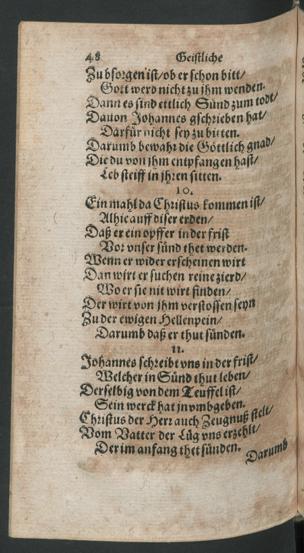 48 Geistliche
Zu bsorgen ist/ ob er schon bitt/
Gott werd nicht zu jhm wenden.
Dann es sind ettlich Sünd zum todt/
Dauon Johannes gschrieben hat/
Darfür nicht sey zu bitten.
Darumb bewahr die Göttlich gnad/
Die du von jhm entpfangen hast/
Leb steiff in jhren sitten.
10.
Ein mahl da Christus kommen ist/
Alhie auff diser erden/
Daß er ein opffer in der frist
Vor vnser sünd thet werden.
Wenn er wider erscheinen wirt
Dan wirt er suchen reine zierd/
Wo er sie nit wirt finden/
Der wirt von jhm verstossen seyn
Zu der ewigen Hellenpein/
Darumb daß er thut sünden.
11.
Johannes schreibt vns in der frist/
Welcher in Sünd thut leben/
Derselbig von dem Teuffel ist/
Sein werck hat jn vmbgeben.
Christus der Herr auch Zeugnuß stelt/
Vom Vatter der Lüg vns erzehlt/
Der im anfang thet sünden.
Darumb